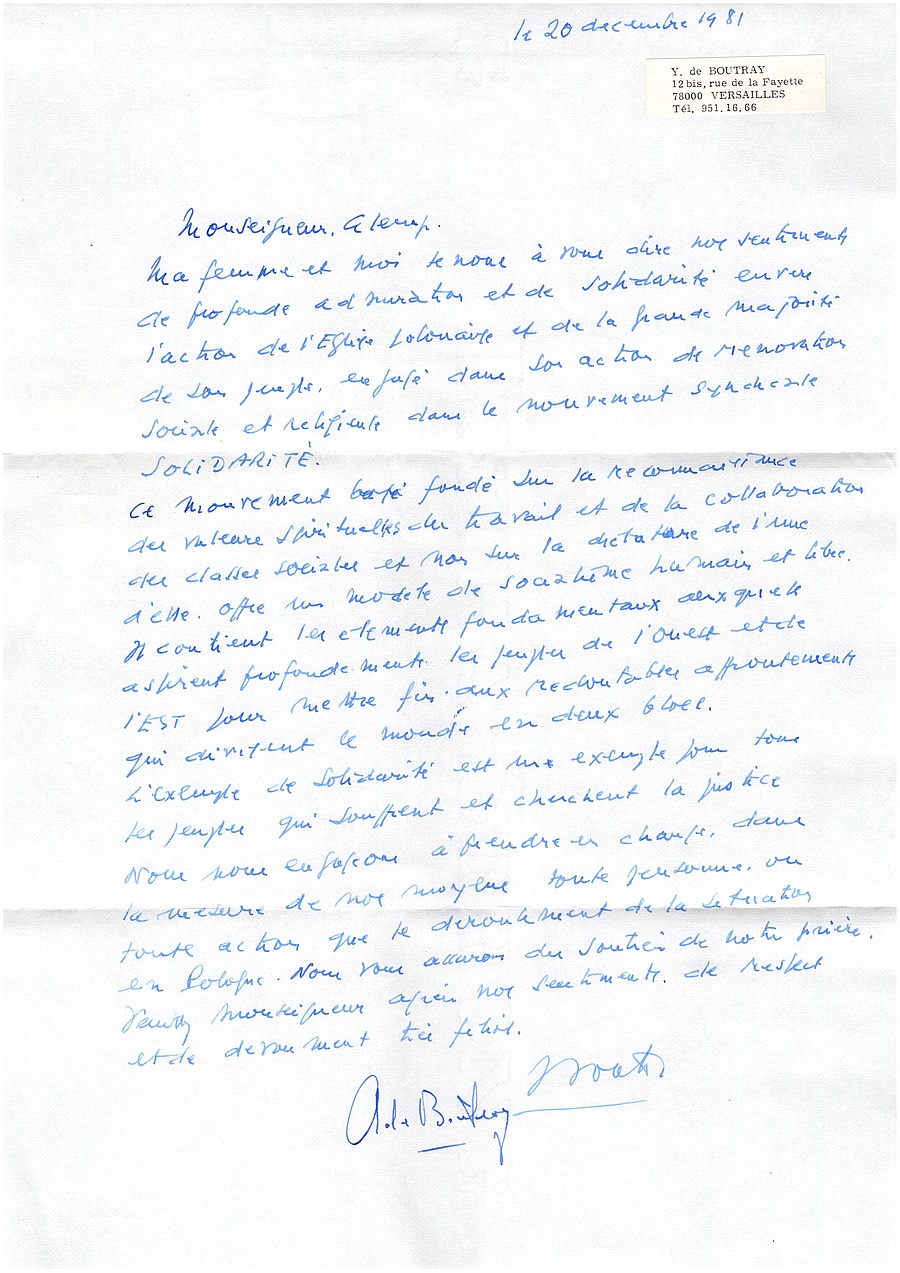 le 20 decembre 1981
Y. de BOUTRAY
12 bis, rue de la Fayette
78000 VERSAILLES
Tél. 951.16.66
Monseigneur, Glemp.
Ma femme et moi tenons à vous dire nos sentiments
de profonde admiration et de solidarité envers
l'action de l'Eglise polonaise et de la grande majorité
de son peuple, engagé dans son action de renovation
sociale et religieuse dans le mouvement syndicale
SOLIDARITÉ.
Ce mouvement fondé sur la reconnaissance
des valeurs spirituelles du travail et de la collaboration
des classes sociales et non sur la dictature de l'une
d'elle. Offre un modele de socialisme humain et libre.
Il contient les elements fondamentaux auxquels
aspirent profondements les peuples de l'Ouest et de
l'EST pour mettre fin aux redoutables affrontements
qui divisent le monde en deux blocs.
L'exemple de Solidarité est une exemple pour tous
les peuples qui souffrent et cherchent la justice
Nous nous engageons à prendre en charge, dans
la mesure de nos moyens toute personne, ou
toute action que le deroulement de la situation
en Pologne. Nous vous assurons du soutien de notre prière.
Monseigneur agréer nos sentiments de respect
et de devoument très filial.
A. de Boutray